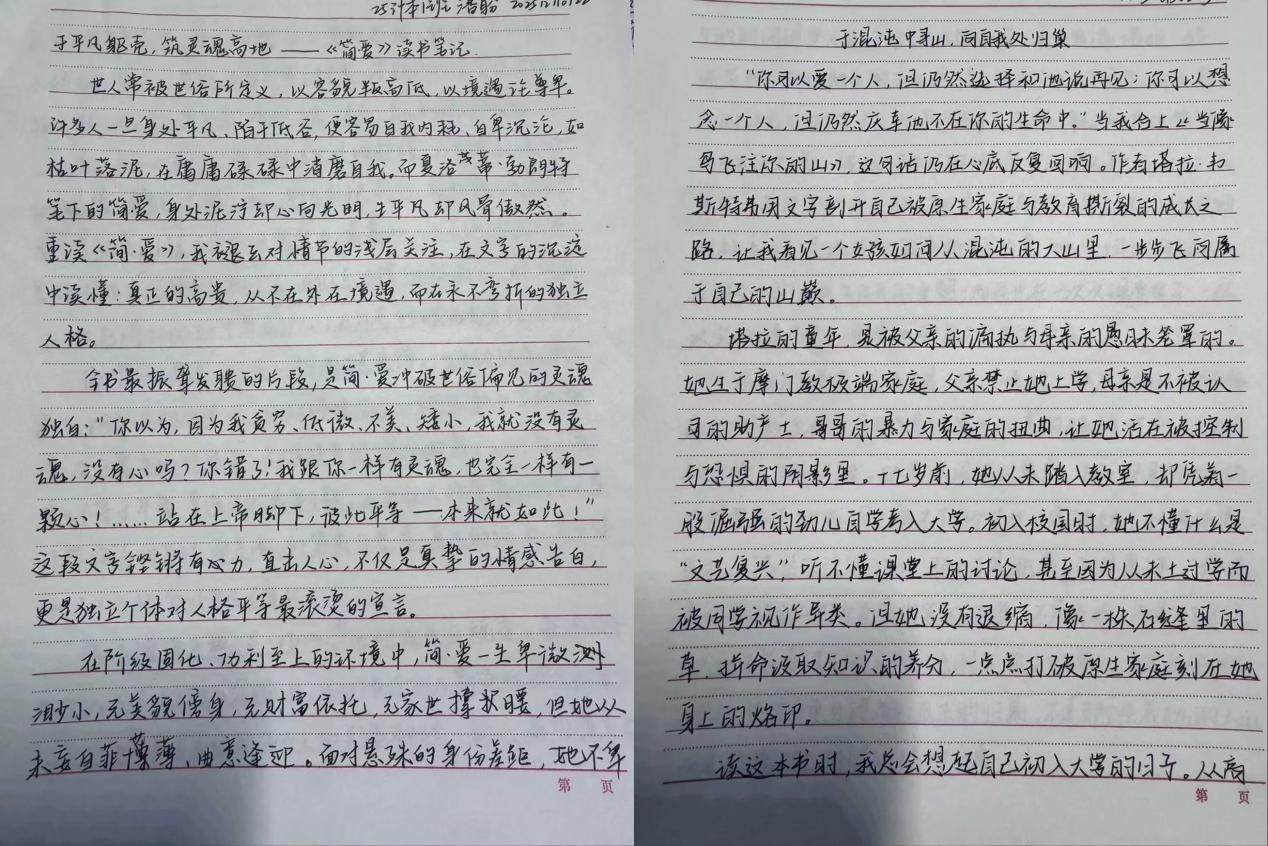 于平凡躯壳，筑灵魂高地 ——《简爱》读书笔记.
世人常被世俗所定义，以容貌判高低，以境遇论尊卑。
许多人一旦身处平凡、陷于低谷，便容易自我内耗、自卑沉沦，如
枯叶落泥，在庸庸碌碌中消磨自我。而夏洛蒂·勃朗特
笔下的简爱，身处泥泞却心向光明，生平凡却风骨傲然。
重读《简·爱》，我褪去对情节的浅层关注，在文字的沉淀
中读懂：真正的高贵，从不在外在境遇，而在永不弯折的独立
人格。
全书最振聋发聩的片段，是简·爱冲破世俗偏见的灵魂
独白：“你以为，因为我贫穷、低微、不美、矮小，我就没有灵
魂，没有心吗？你错了！我跟你一样有灵魂，也完全一样有一
颗心！……站在上帝脚下，彼此平等——本来就如此！”
这段文字铿锵有力，直击人心，不仅是真挚的情感告白，
更是独立个体对人格平等最滚烫的宣言。
在阶级固化、功利至上的环境中，简·爱一生卑微
渺小，无美貌傍身，无财富依托，无家世撑腰，但她从
未妄自菲薄、曲意逢迎。面对悬殊的身份差距，她不卑
第 页
于混沌中寻山，向自我处归巢
“你可以爱一个人，但仍然选择和他说再见；你可以想
念一个人，但仍然庆幸他不在你的生命中。”当我合上《当像
鸟飞往你的山》，这句话仍在心底反复回响。作者塔拉·韦
斯特弗用文字剖开自己被原生家庭与教育撕裂的成长之
路，让我看见一个女孩如何从混沌的大山里，一步步飞向属
于自己的山巅。
塔拉的童年，是被父亲的偏执与母亲的愚昧笼罩的。
她生于摩门教极端家庭，父亲禁止她上学，母亲是不被认
可的助产士，哥哥的暴力与家庭的扭曲，让她活在被控制
与恐惧的阴影里。十七岁前，她从未踏入教室，却凭着一
股倔强的劲儿自学考入大学。初入校园时，她不懂什么是
“文艺复兴”，听不懂课堂上的讨论，甚至因为从未上过学而
被同学视作异类。但她没有退缩，像一株石缝里的
草，拼命汲取知识的养分，一点点打破原生家庭刻在她
身上的烙印。
读这本书时，我总会想起自己初入大学的日子。从高
第 页